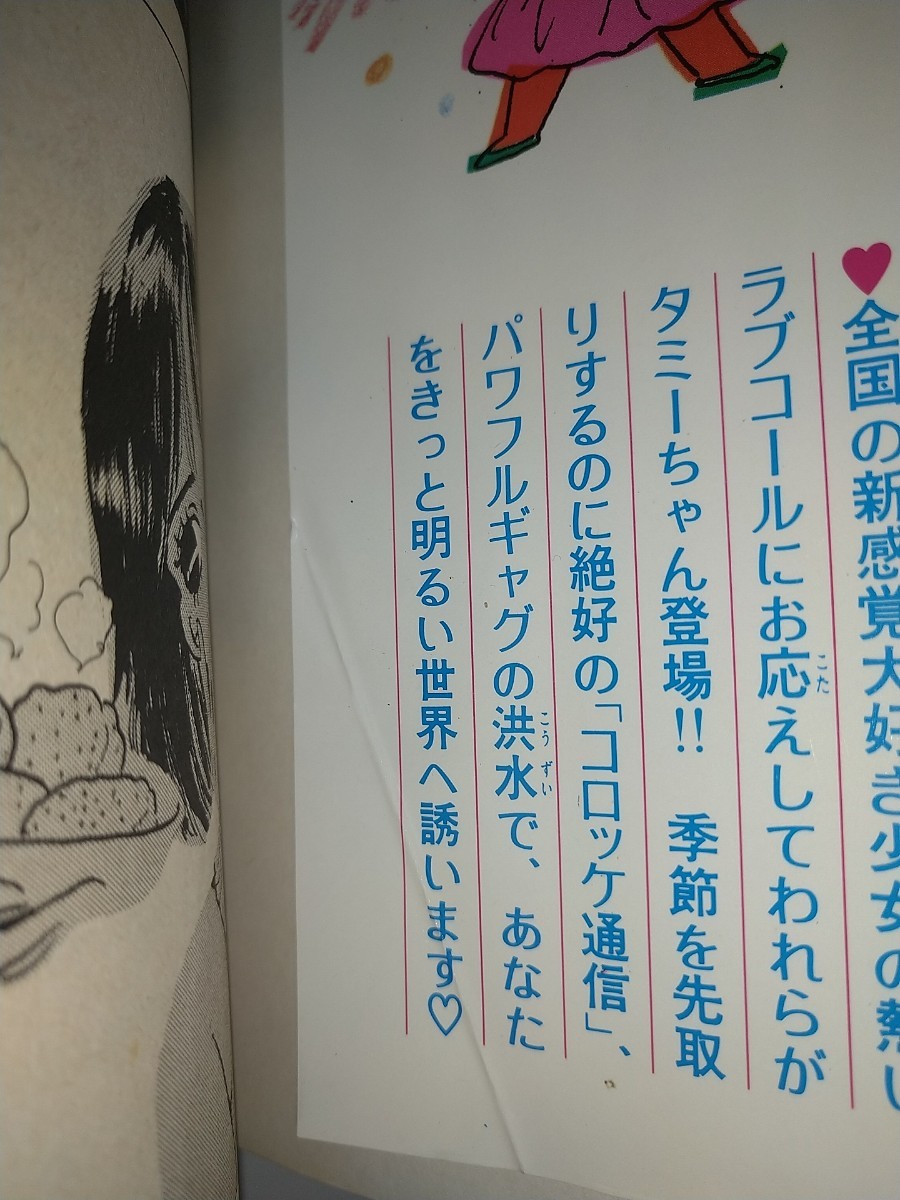 ♥全国の新感覚大好き少女の熱い
ラブコールにお応えしてわれらが
タミーちゃん登場!! 季節を先取
りするのに絶好の「コロッケ通信」、
パワフルギャグの洪水で、あなた
をきっと明るい世界へ誘います♡